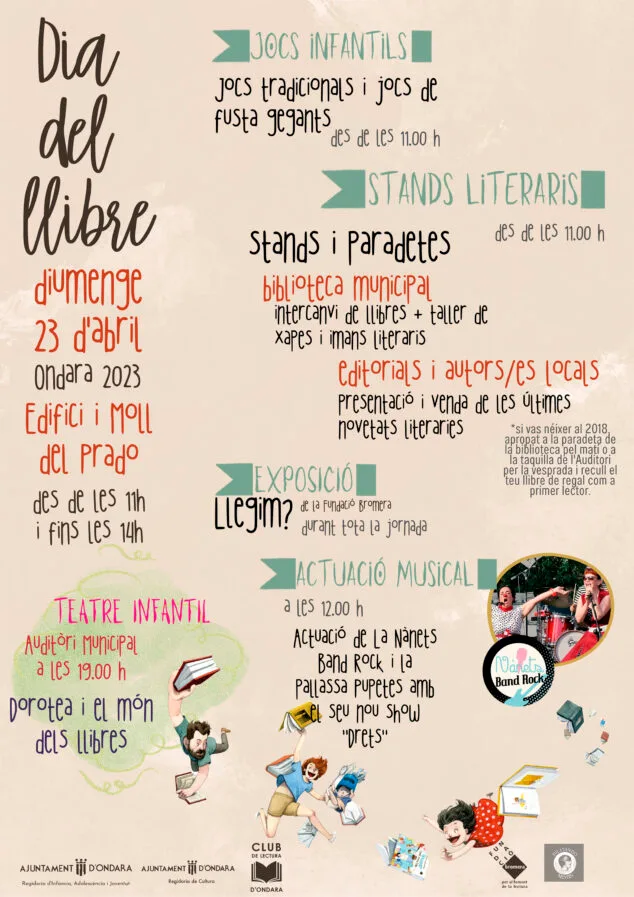 Dia
del
llibre
diumenge
23 d'abril
Ondara 2023
Edifici i Moll
del Prado
des de les 11h
i fins les 14h
JOCS INFANTILS
Jocs tradicionals i jocs de
fusta gegants
des de les 11.00 h
STANDS LITERARIS
des de les 11.00 h
Stands i paradetes
biblioteca municipal
intercanvi de llibres + taller de
xapes i imans literaris
editorials i autors/es locals
presentació i venda de les últimes
novetats literaries
*si vas néixer al 2018,
apropat a la paradeta de
la biblioteca pel matí o a
la taquilla de l'Auditori
per la vesprada i recull el
teu llibre de regal com a
primer lector.
EXPOSICIÓ
Llegim? de la Fundació Bromera
durant tota la jornada
ACTUACIÓ MUSICAL
a les 12.00 h
Actuació de la Nànets
Band Rock i la
pallassa Pupetes amb
el seu nou show
"Drets"
Nànets
Band Rock
TEATRE INFANTIL
Auditòri Municipal
a les 19.00 h
Dorotea i el món
dels llibres
AJUNTAMENT D'ONDARA
Regidoria d'Infància, Adolescència i Joventut
AJUNTAMENT D'ONDARA
Regidoria de Cultura
CLUB
DE LECTURA
D'ONDARA
FUNDACIÓ
bromera
per al foment
de la lectura